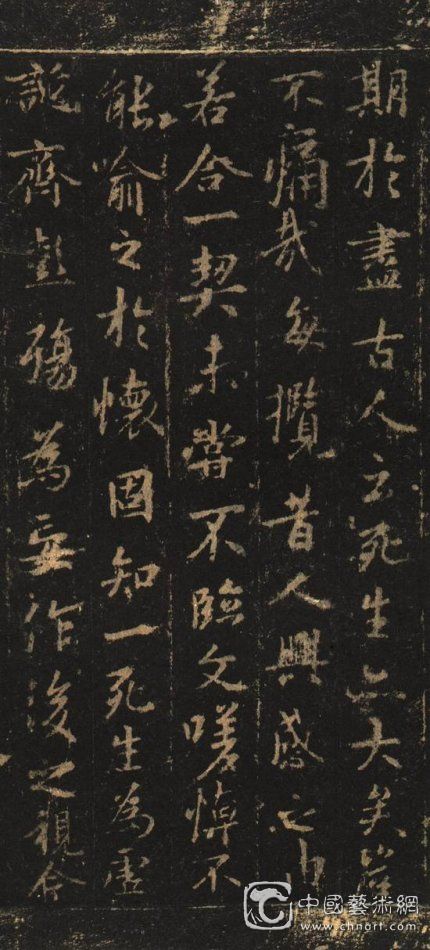 期於盡古人云死生亦大矣豈
不痛哉每攬昔人興感之由
若合一契未嘗不臨文嗟悼不
能喻之於懷固知一死生為虛
誕齊彭殤為妄作後之視今
中國藝術網
www.chnart.com